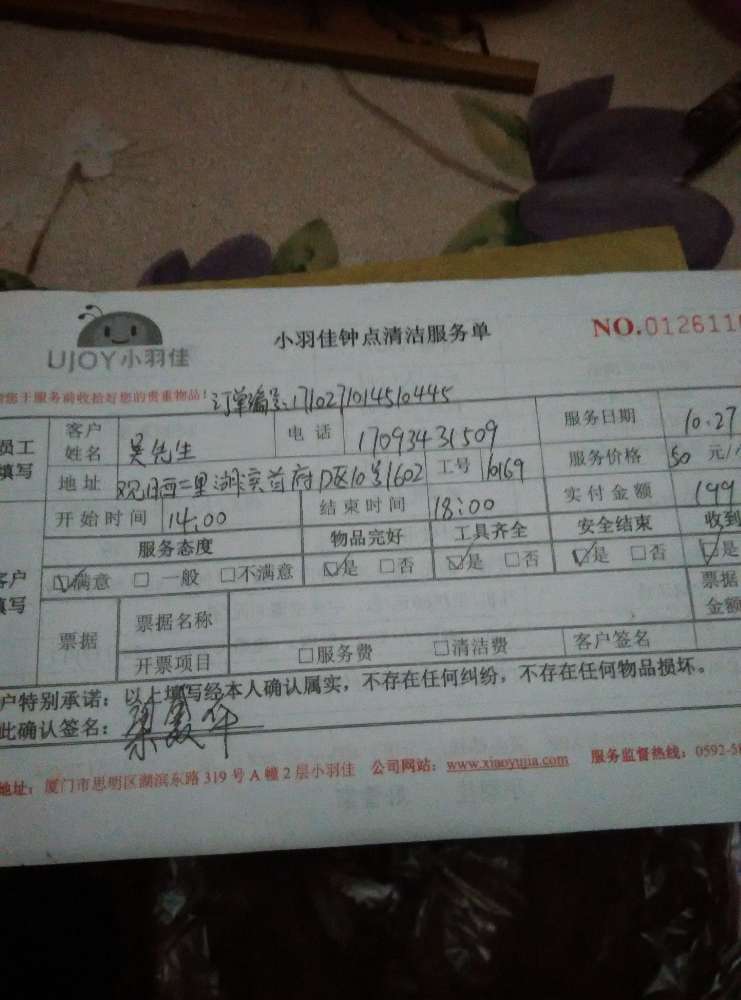 UJOY小羽佳
小羽佳钟点清洁服务单
NO.0126110
您于服务前收拾好您的贵重物品! 订单编号:171027101451044​5
员工填写 客户姓名 吴先生 电话 17093431509 服务日期 10.27
地址 观日西二里湖滨首府D区10号1602 工号 10169 服务价格 50 元/
开始时间 14:00 结束时间 18:00 实付金额 199
服务态度 物品完好 工具齐全 安全结束 收到
客户填写 ☑满意 □ 一般 □不满意 ☑是 □否 ☑是 □否 ☑是 □否 ☑是
票据 票据名称 票据金额
开票项目 □服务费 □清洁费 客户签名
户特别承诺:以上填写经本人确认属实,不存在任何纠纷,不存在任何物品损坏。
此确认签名:
地址:厦门市思明区湖滨东路 319 号 A 幢 2 层小羽佳 公司网站:www.xiaoyujia.com 服务监督热线:0592-58